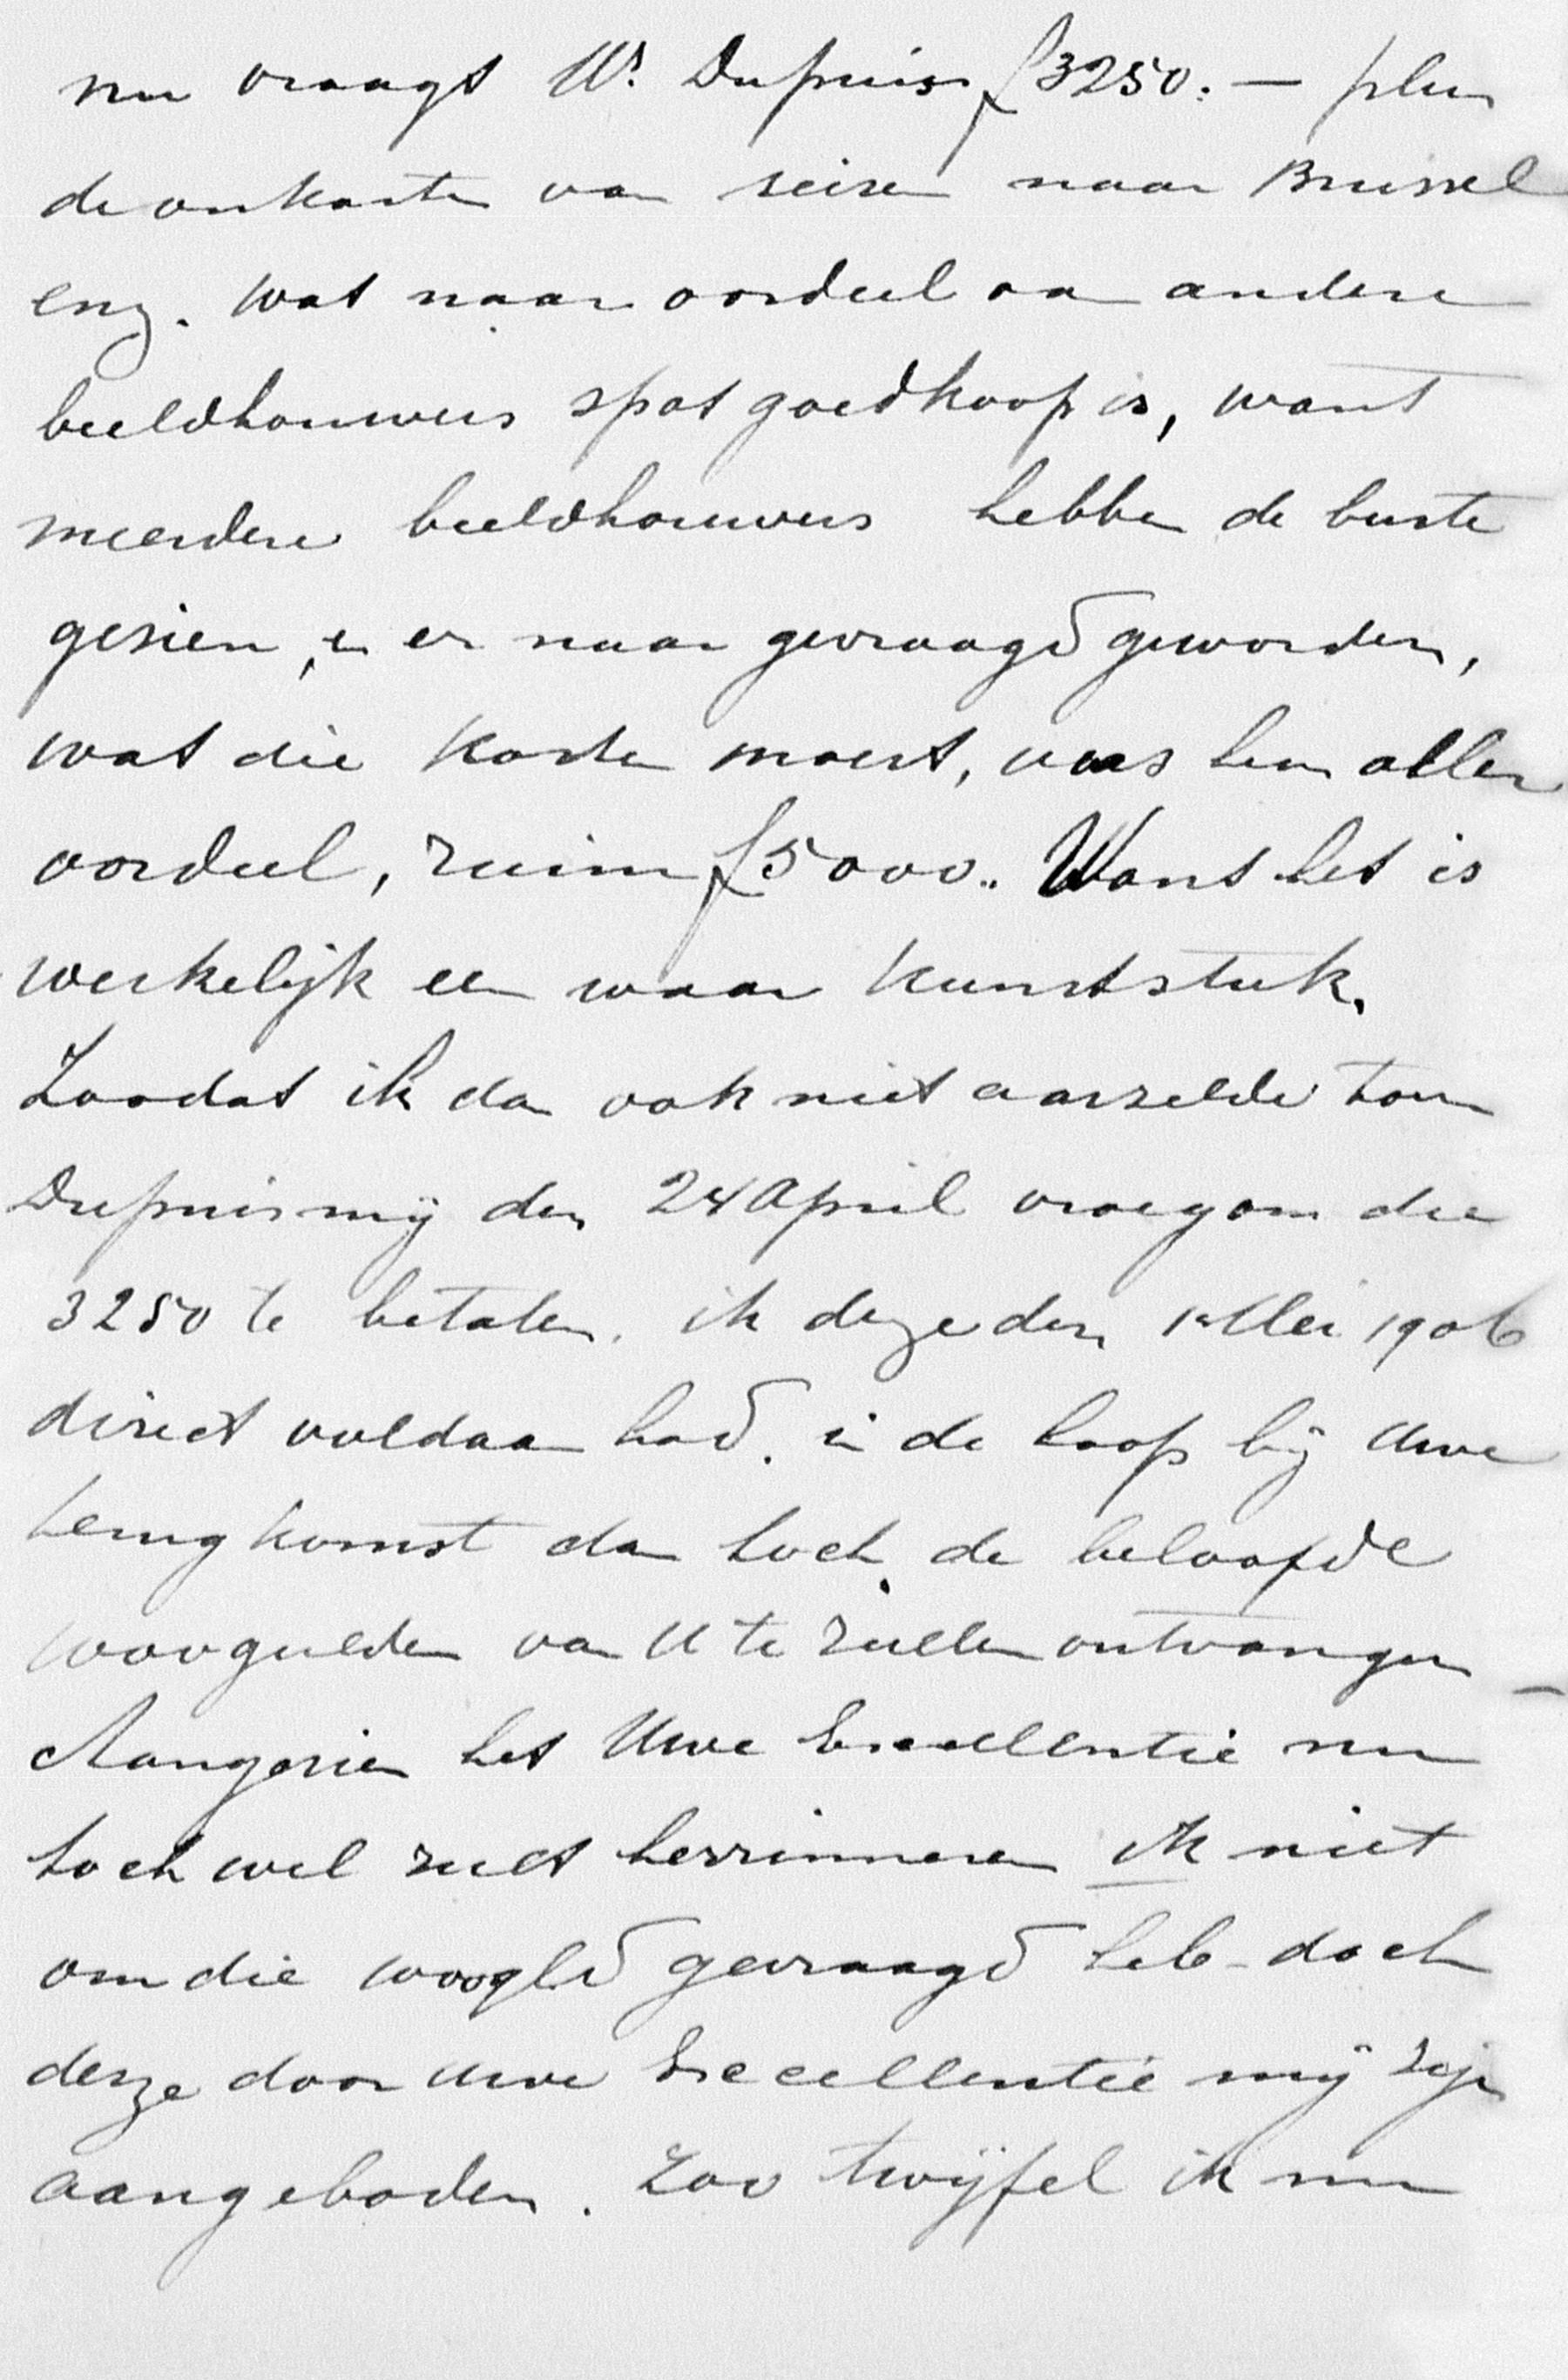 nu vraagt Mr. Dupuis f3250.— plus
de onkosten van reizen naar Brussel
enz. wat naar oordeel van andere
beeldhouwers spot goedkoop is, want
meerdere beeldhouwers hebben de buste
gezien, en er naar gevraagd geworden,
wat die kosten moest, was hun aller
oordeel, ruim f5000.. Want het is
werkelijk een waar kunststuk.
Zoodat ik dan ook niet aarzelde toen
Dupuis mij den 24 April vroeg om die
3250 te betalen. ik deze den 1e Mei 1906
direct voldaan had. in de hoop bij Uwe
terugkomst dan toch de beloofde
1000 gulden van U te zullen ontvangen –
Aangezien het Uwe Excellentie nu
toch wel zult herrinneren ik niet
om die 1000 gld gevraagd heb – doch
deze door Uwe Excellentie mij zijn
aangeboden. Zoo twijfel ik nu